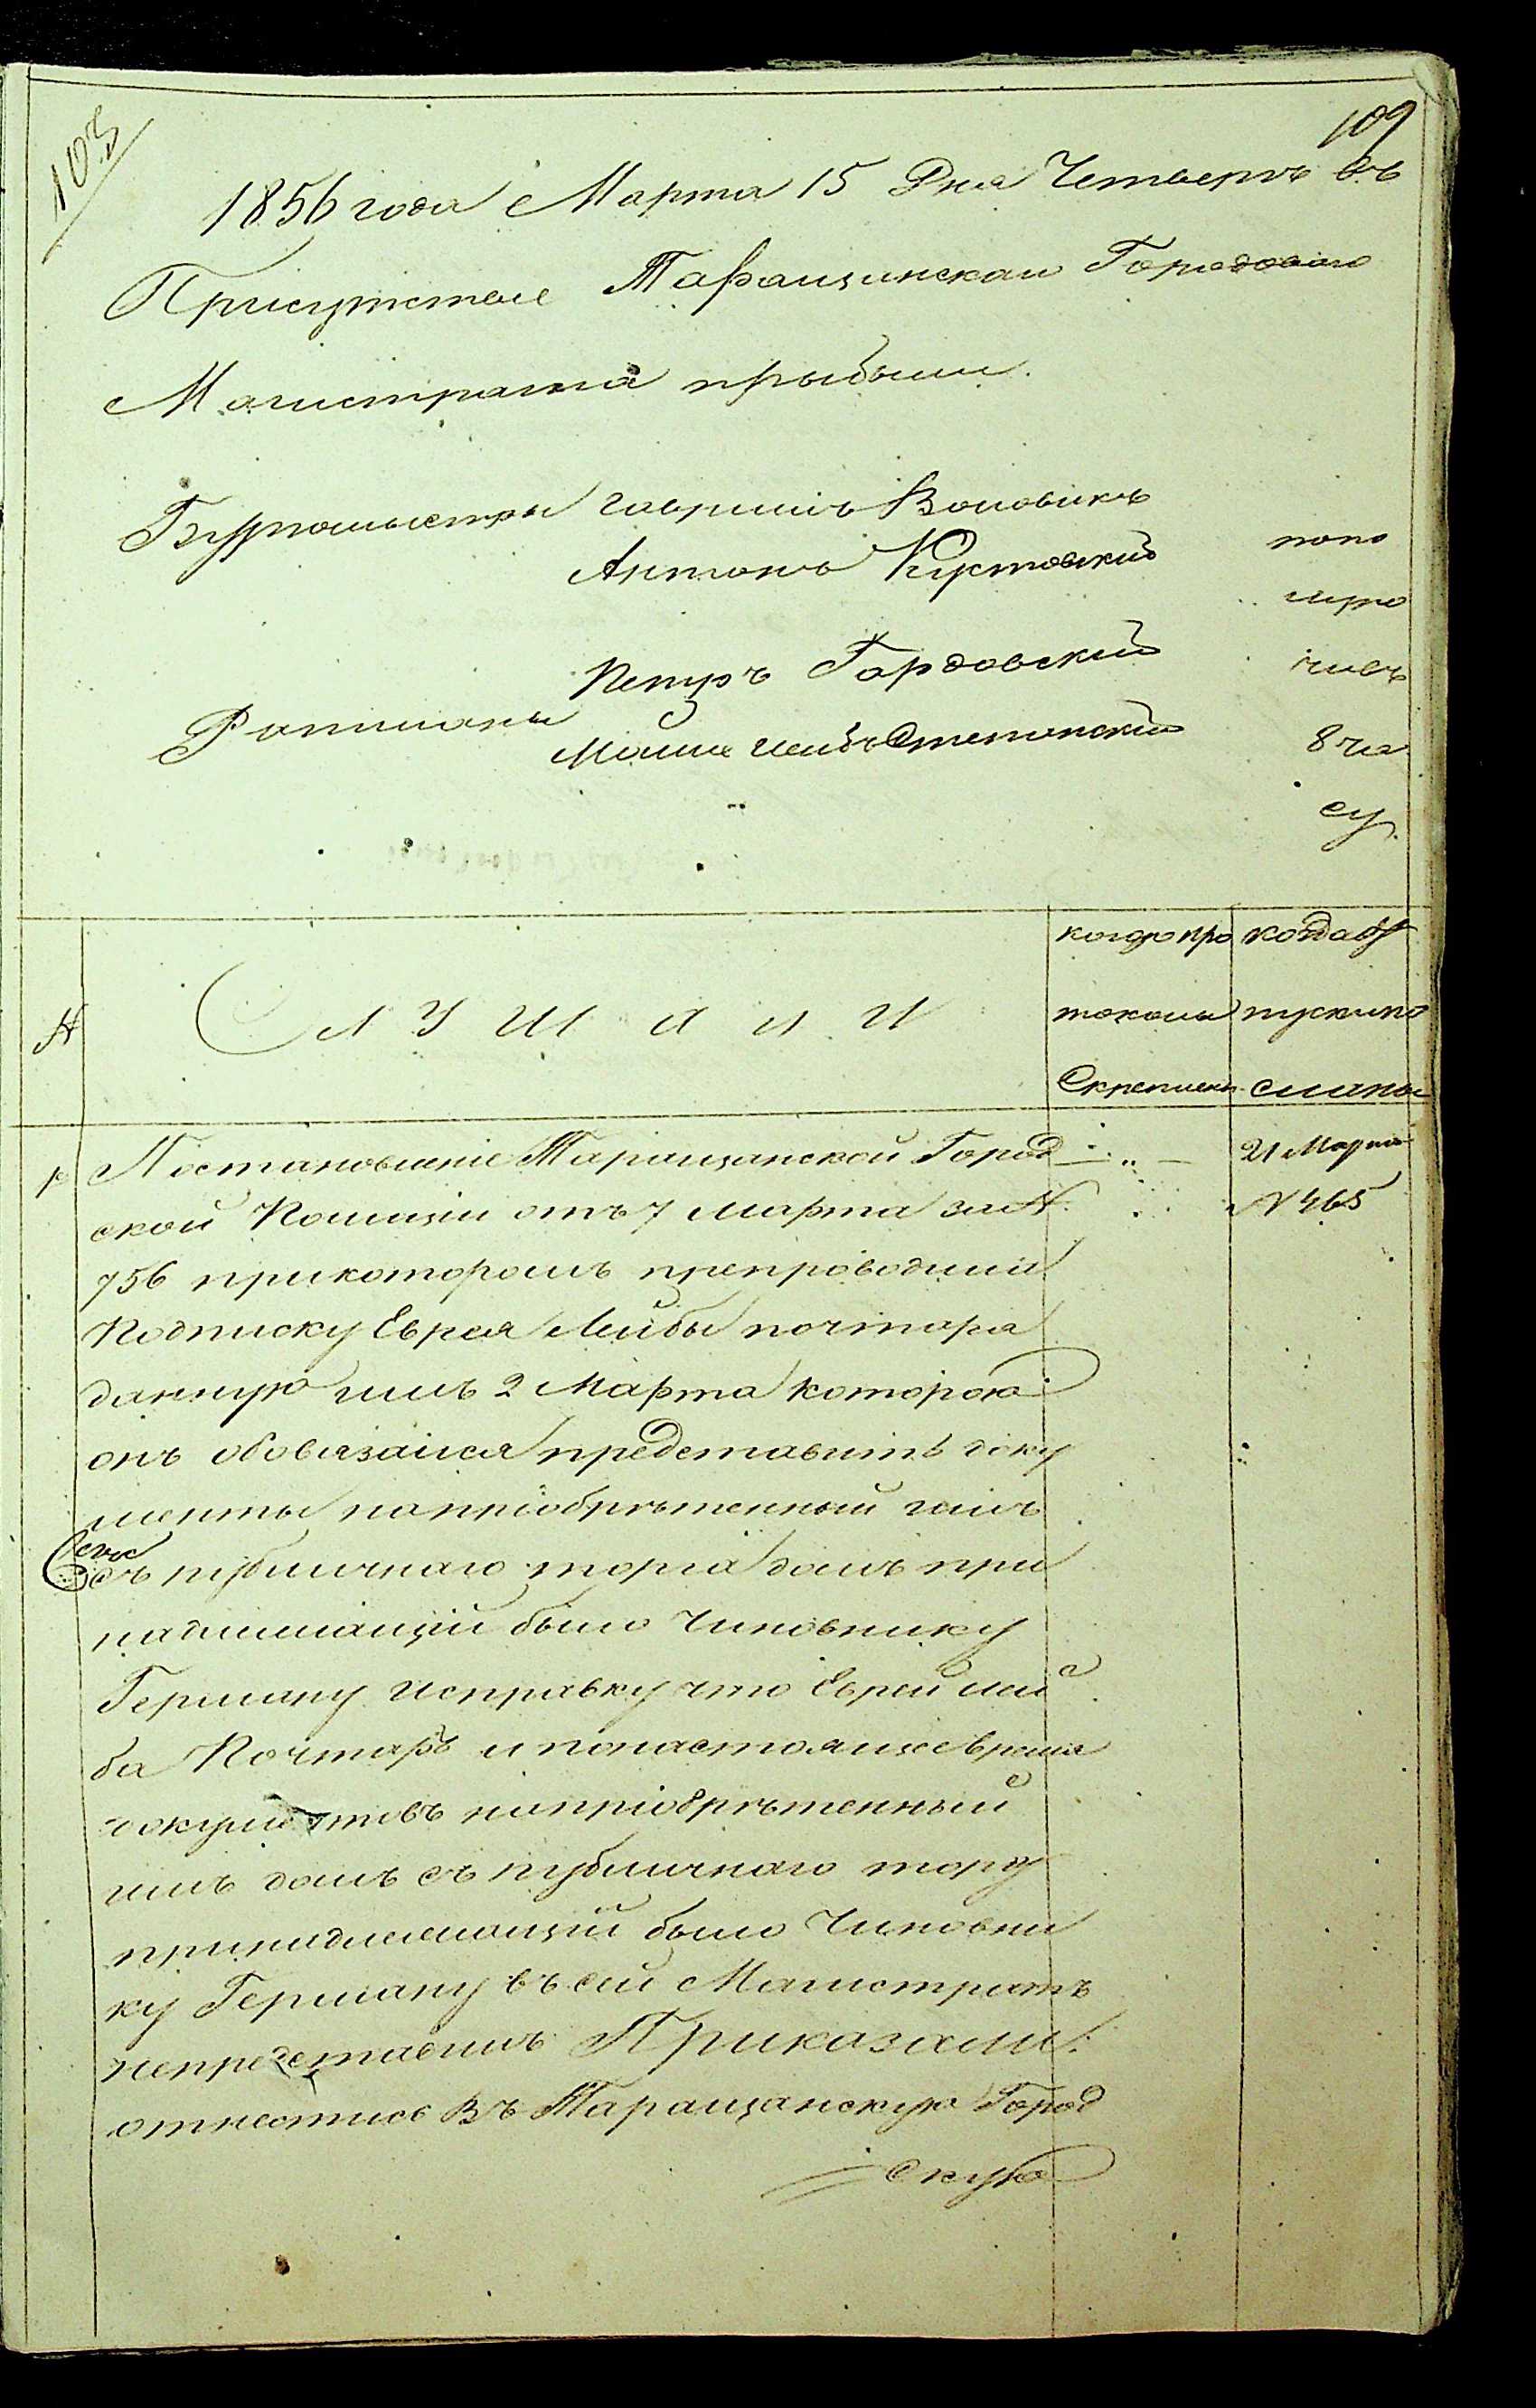 103
109
1856 года Марта 15 Дня Четверкъ въ
Присутствіе Таращанскаго Городоваго
Магистрата прыбыли.
Бургомыстры Гавриилъ Воловикъ
Антонъ Кустовский
попо
лудно
Петръ Гордовский
Ратманы
Мошко Лейбъ Степанский
8 ча
су.
№
Слушали
когда про
токолы
Скреплены
когда от
пуски по
сланы
1. Постановленіе Таращанской Город
21 Марта
ской Полиціи отъ 7 марта за №.
№ 465
756 прикоторомъ препроводила
Подписку Еврея Лейбы почтара
данную имъ 2 Марта которою
онъ обовязался представить доку
менты напріобрѣтенный имъ
съ публичнаго торга домъ при
надлежащій было Чиновнику
Герману Исправку что Еврей Лей
ба Почтаръ и понастоящее время
документовъ напріобрѣтенный
имъ домъ съ публичнаго торгу
принадлежащій было Чиновни
ку Герману въ сей Магистратъ
непредставилъ Приказали:
отнестись Въ Таращанскую Город
скую